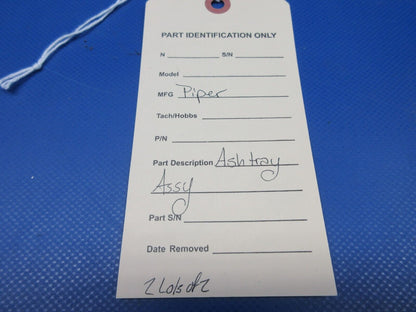 PART IDENTIFICATION ONLY
N S/N
Model
MFG Piper
Tach/Hobbs
P/N
Part Description Ashtray
Assy
Part S/N
Date Removed
2 Lots of 2